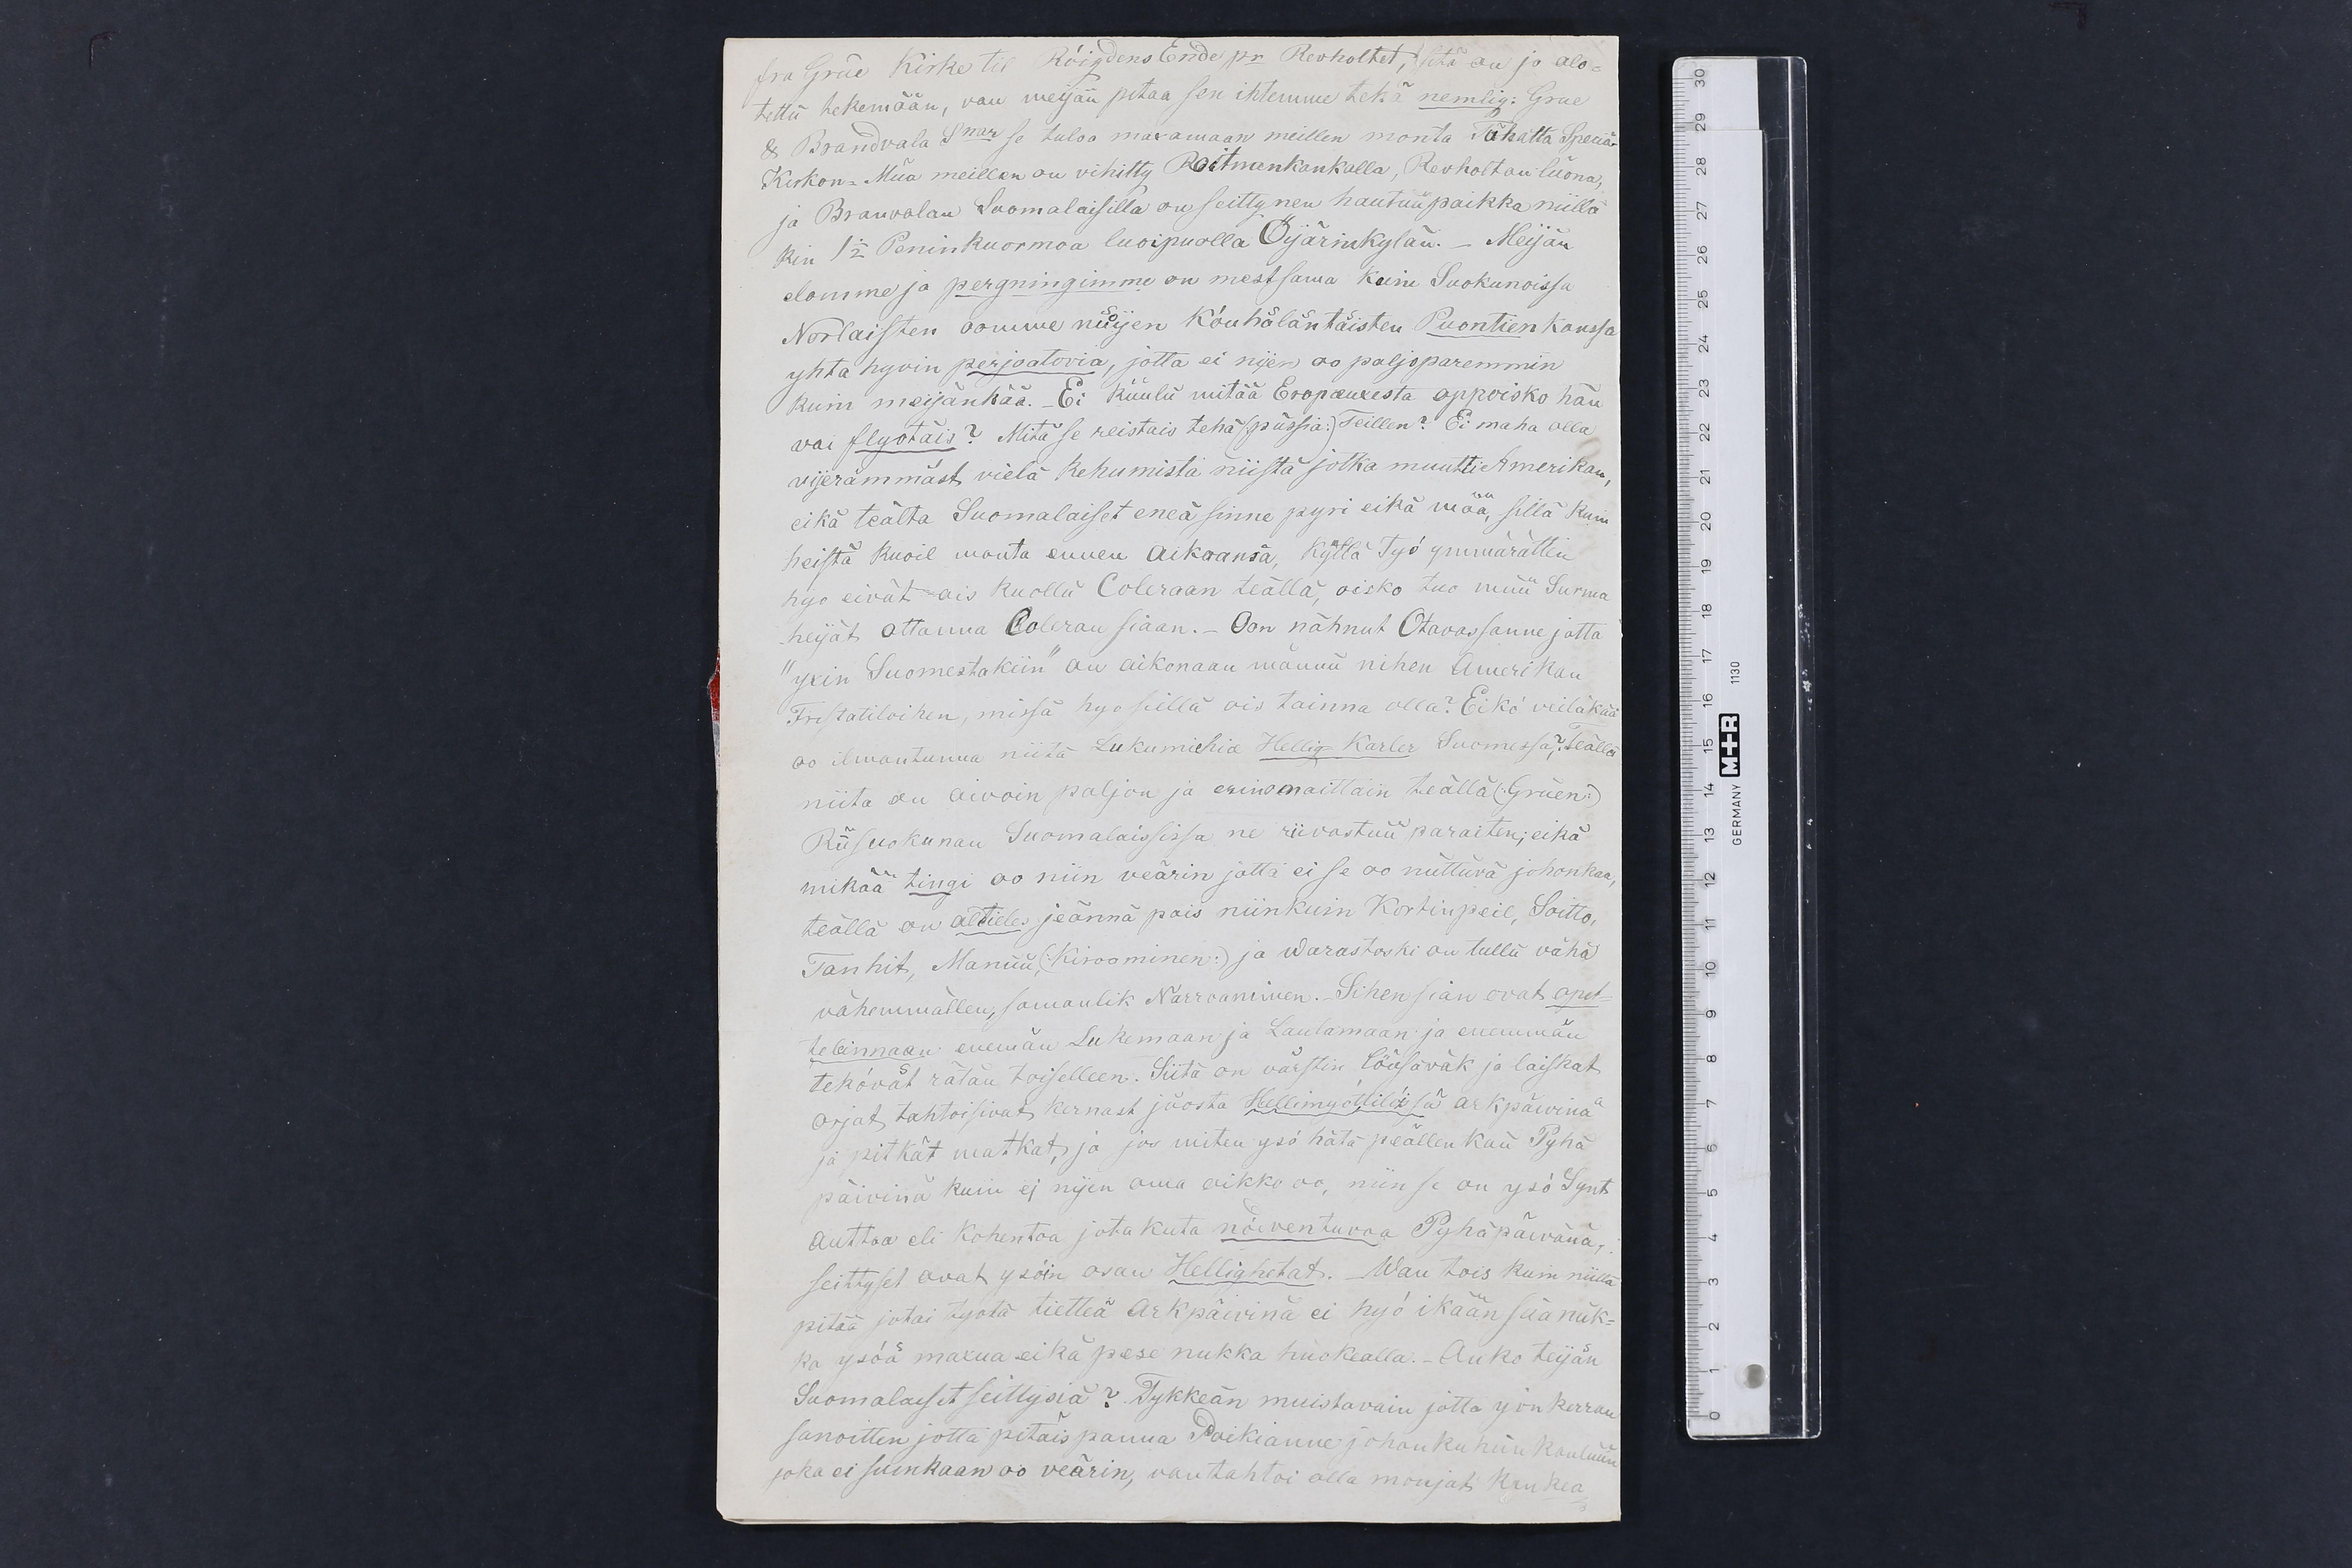 fra Grue Kirke til Róigdens Ende pr Revholtet, sitä on jo alo=
tettü tekemään, van meijän pitaa sen ihtemme tekä nemlig: Grue
& Brandvala Snar se tuloo maxamaan meillen monta Tuhatta Speciär
Kirkon=Mua meillen on vihitty Roitmenkankalla, Revholtan lüona,
ja Branvalan Suomalaisilla on seittynen hautuüpaikka niillä
kin 1½ Peninkuormoa luoipuolla Öijärinkylän. – Meijän
elomme ja pergningimme on mest sama kuin Suokunoissa
Norlaisten oomme niijen Kóuhäläntäisten Puontien kanssa
yhta hyvin perjoatovia, jotta ei nijen oo paljoparemmin
kuin meijänkää. – Ei küulü mitää Eropæuxesta appoisko hän
vai flyotäis? Mitä se reistais tehä (püssia:) Teillen? Ei maha olla
vijerämmäst vielä kehumista niistä jotka muutti Amerikan,
eikä teälta Suomalaiset eneä sinne pyri eikä mää, sillä kuin
heistä kuoil monta ennen aikaansa, kyllä Työ ymmärättin
hyo eivät ois kuollü Coleraan teällä, oisko tuo müü Surma
heijät ottanna Coleran siaan. – Oon nähnut Otavassanne jotta
"yxin Suomestakiin" on aikonaan männü nihen Amerikan
Fristatiloihen, missä hyo siellä ois tainna olla? Eikó veiläkää
oo ilmantunna niitä Lukumiehia Hellig-Karler Suomessa? Teällä
niita on aivoin paljon ja erinomaittain teällä (:Grüen:)
Riisuokunan Suomalaississa ne riivastuü paraiten; eikä
mikää tingi oo niin veärin jotta ei se oo nüttüvä johonkaa,
teällä on altieles jeännä pois niinkuin Kortinpeil, Soitto,
Tanhit, Manüü, (:Kiroominen:) ja Warastoski on tullü vähä
vähemmällen, samanlik Narroaminen. – Sihen sian ovat opit=
telinnaan enemän Lukemaan ja Laulamaan ja enemmän
tekóvät rätän toiselleen. Siitä on värstin löüsäväk ja laiskat
orjat, tahtoisivat kernast jüosta Hellimyóttilóissä arkpäivinä
ja pitkät matkat, ja jos miten ysó hätä peällen kaü Pyhä
päivinä kuin ej nijen oma oikko oo, niin se on ysó Synt
auttaa eli kohentoa jotakuta nóiventuvaa Pyhäpäivänä,
seittyset ovat ysóin osan Hellighetat. – Wan tois kuin niillä
pitää jotai tyotä tietteä arkpäivinä ei hyó ikään säa nük=
ka ysóä maxua eikä pese nukka huokealla. – Onko teijän
Suomalaiset seittysiä? Tykkeän muistavain jotta yön kerran
sanoitten jotta pitäis panna Poikianne johonkuhün Kouluün
joka ei suinkaan oo veärin, van tahtoi olla monjat kaukea